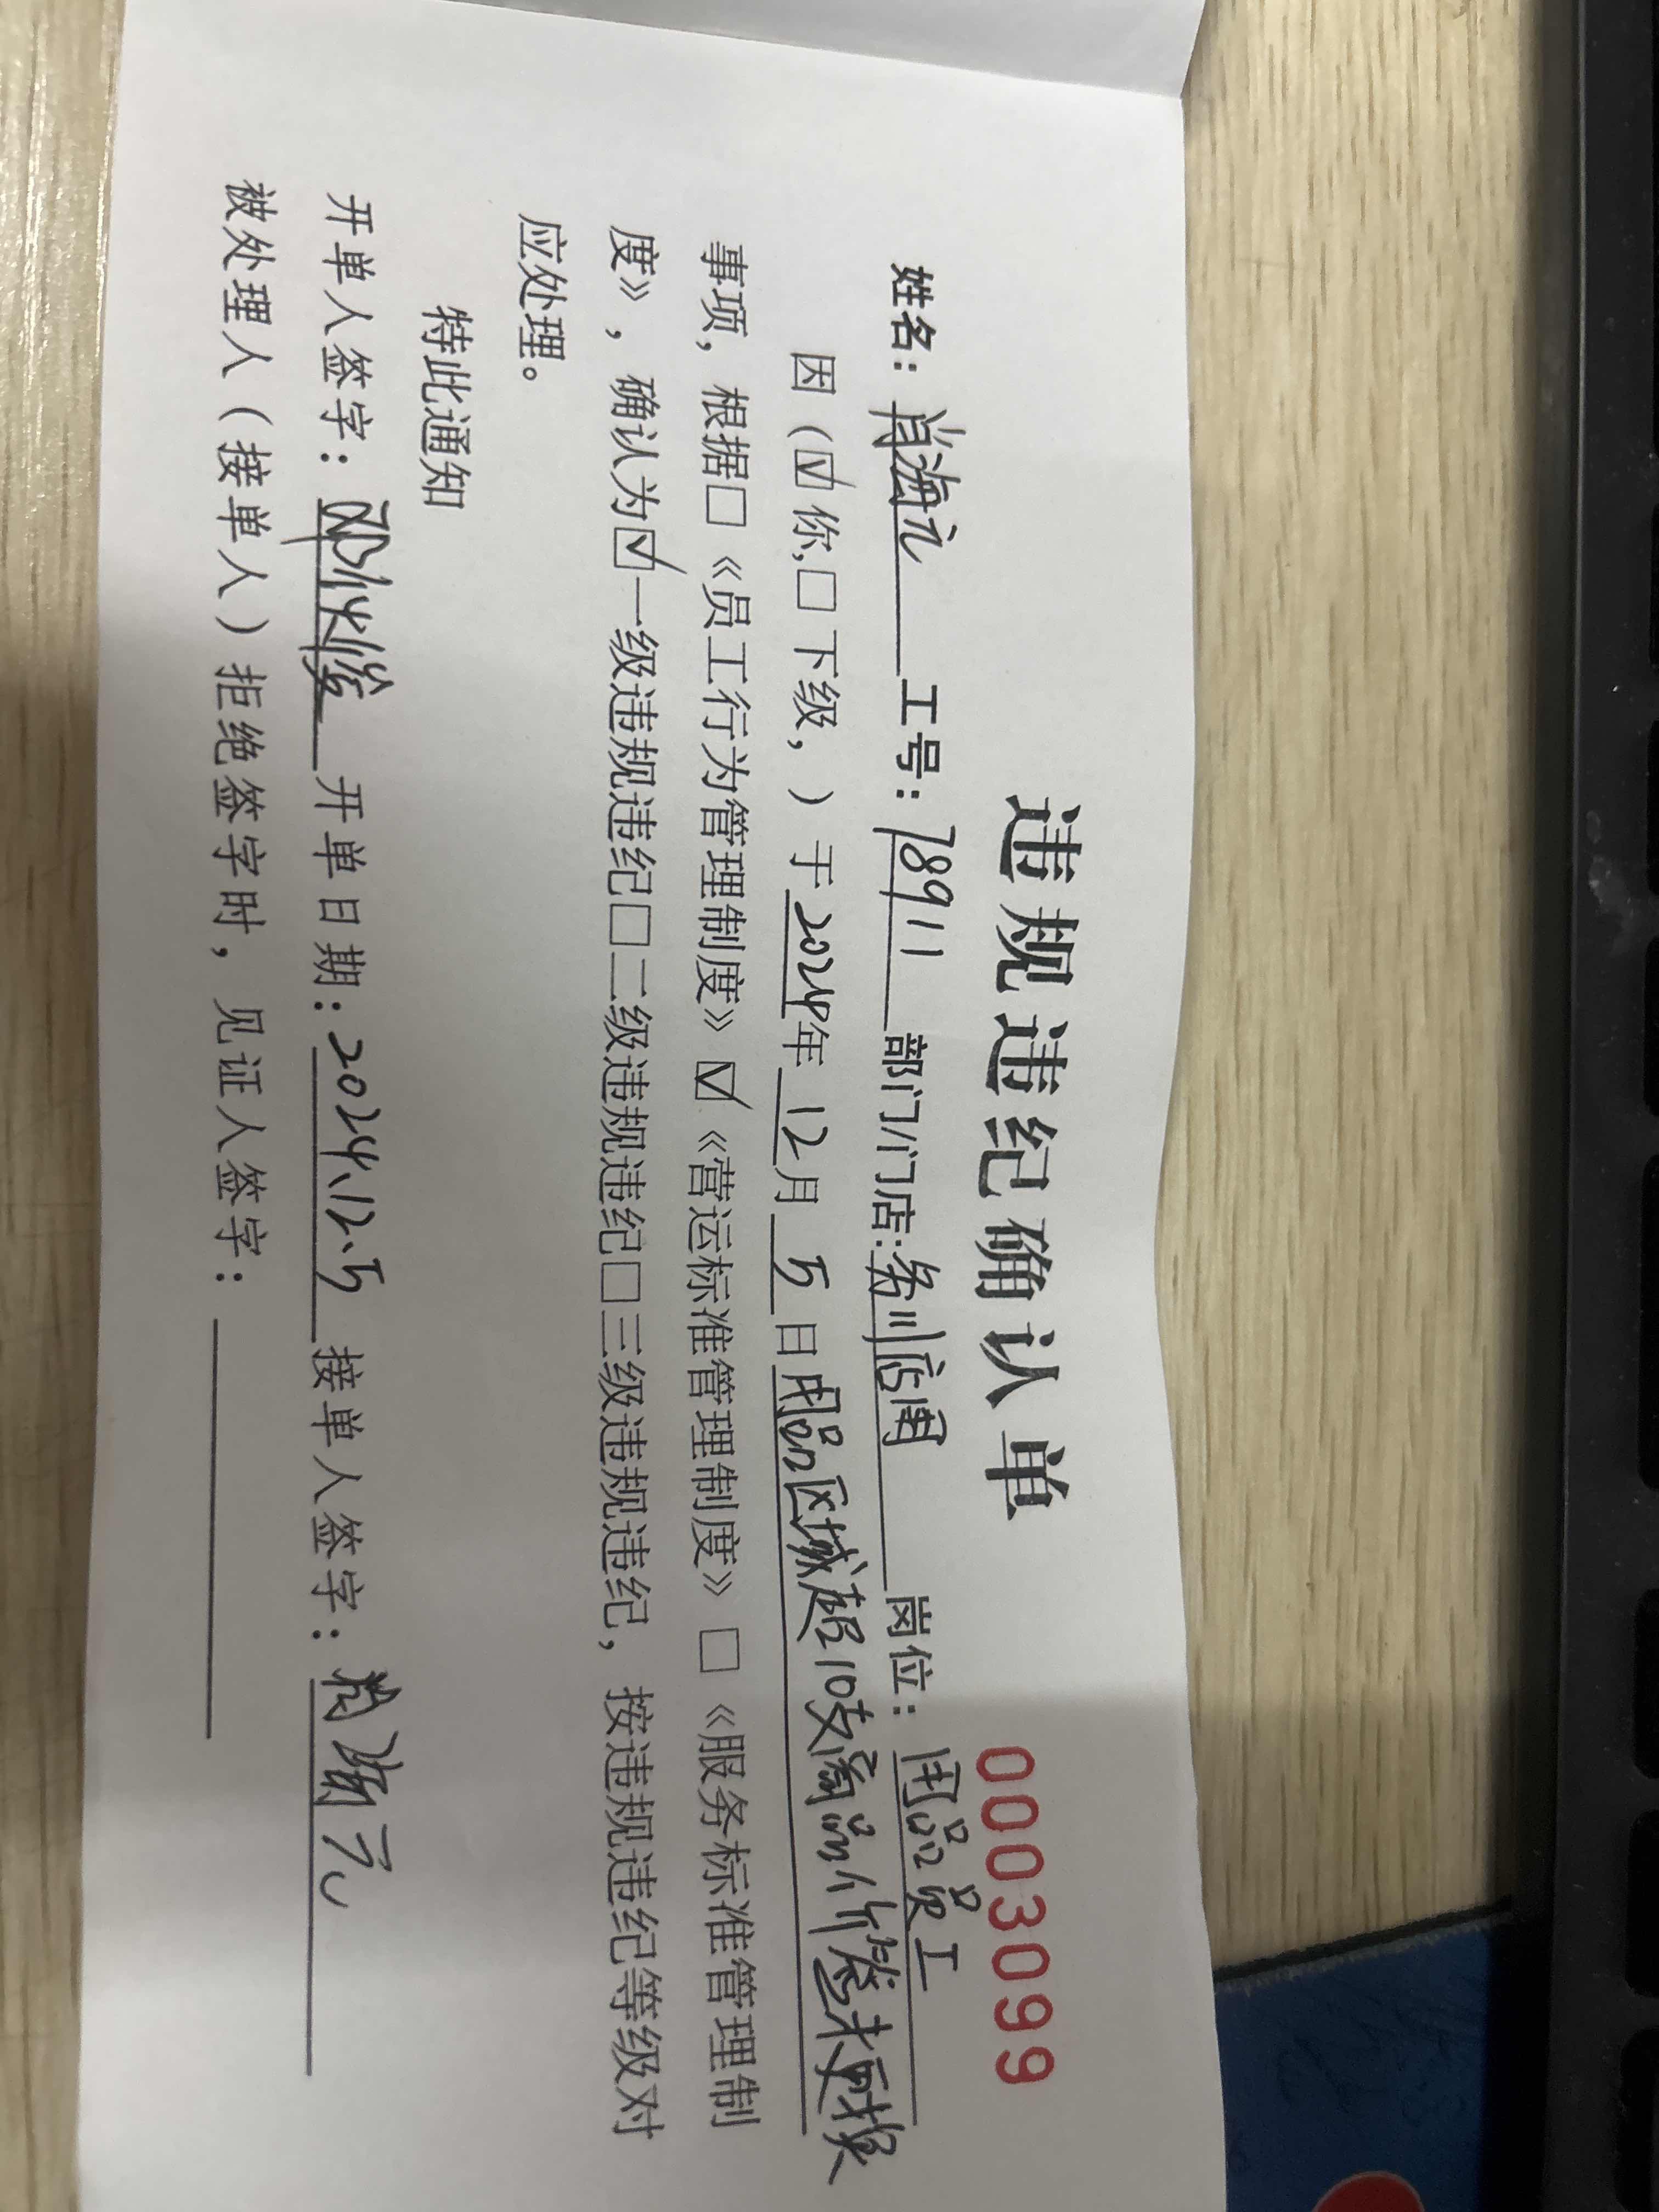 违规违纪确认单 0003099
姓名：肖海元 工号：78911 部门/门店: 务川店 岗位：用品员工
因（☑你,□下级，）于2024年12月5日用品区域超10支商品价签未更换
事项，根据□《员工行为管理制度》☑《营运标准管理制度》□《服务标准管理制
度》，确认为☑一级违规违纪□二级违规违纪□三级违规违纪，按违规违纪等级对
应处理。
特此通知
开单人签字： 开单日期：2024.12.5 接单人签字：肖海元
被处理人（接单人）拒绝签字时，见证人签字：